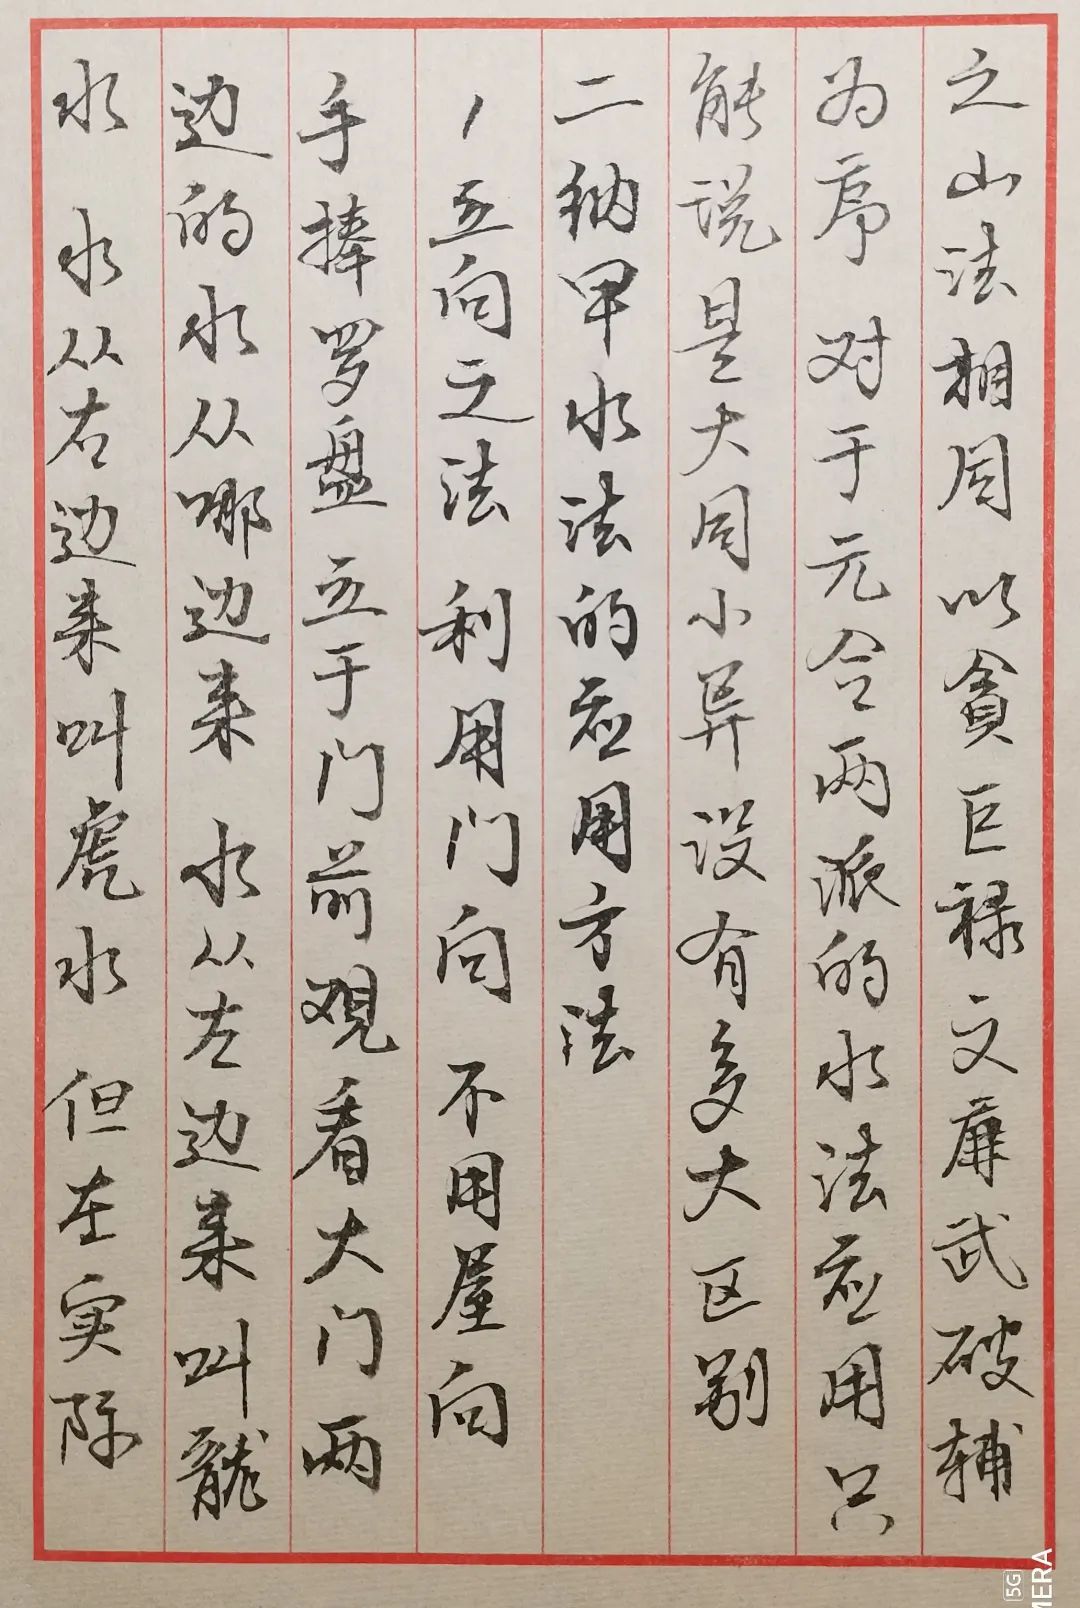 之山法相同 以贪巨禄文廉武破辅
为序 对于元合两派的水法应用只
能说是大同小异 没有多大区别
二纳甲水法的应用方法
1立向之法 利用门向 不用屋向
手捧罗盘立于门前观看大门两
边的水从哪边来 水从左边来叫龍
水 水从右边来叫虎水 但在实际
5G
MERA